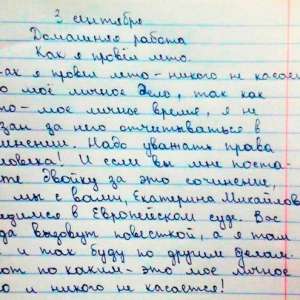 3 сентября
Домашняя работа
Как я провёл лето.
ак я провёл лето - никого не касае
о моё личное дело, так как
то - моё личное время, я не
зан за него отчитываться в
инении. Надо уважать права
ловека! И если вы мне поста-
те двойку за это сочинение,
мы с вами, Екатерина Михайлов
едимся в Европейском суде. Вас
да вызовут повесткой, а я там
и так буду по другим делам.
от по каким - это моё личное
о и никого не касается!